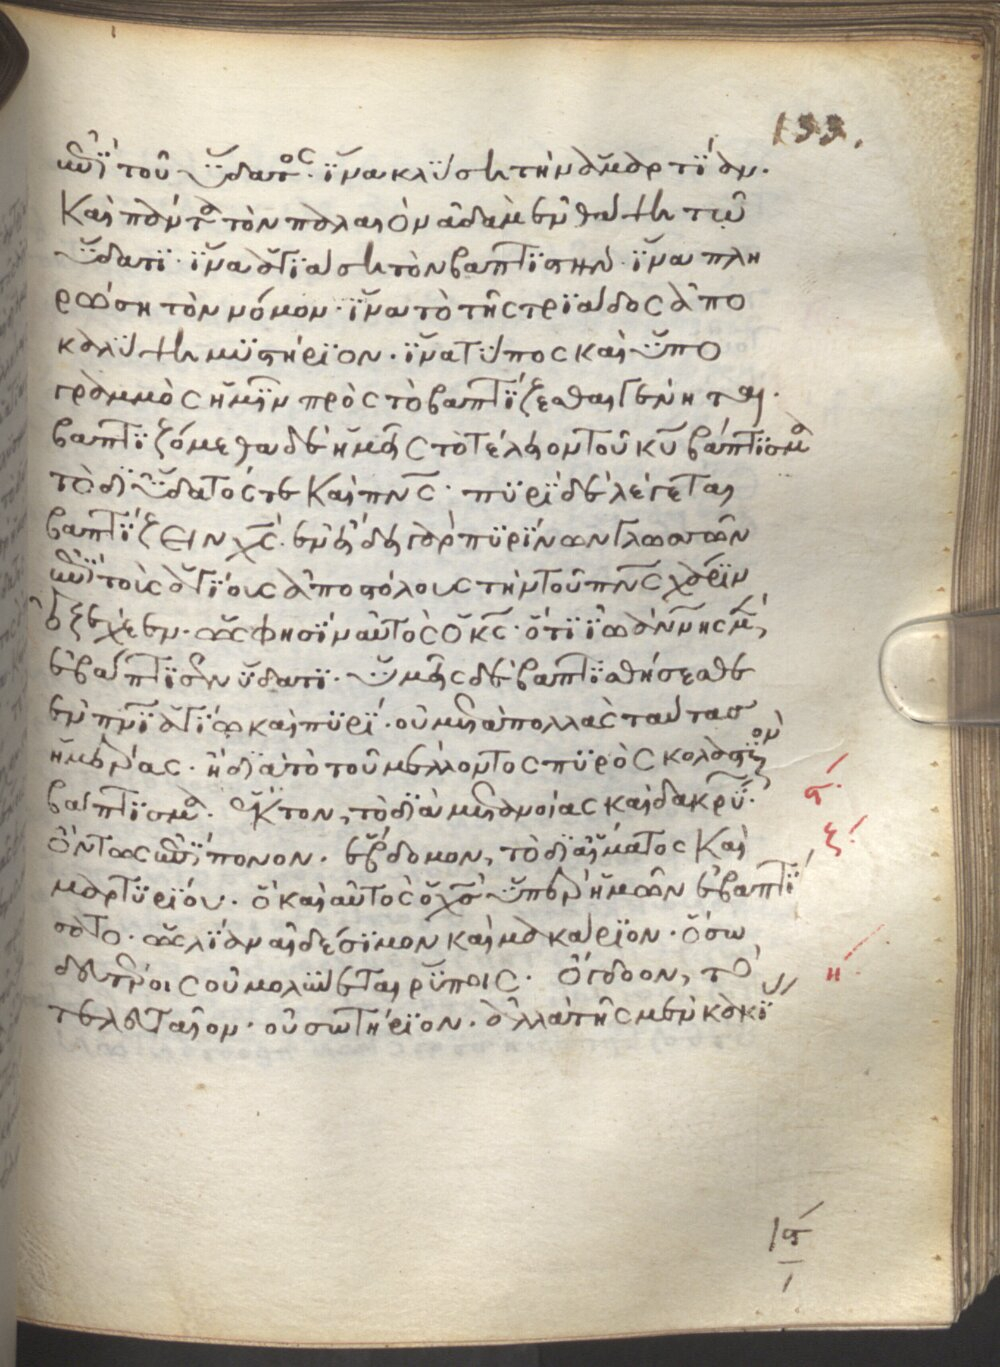 133.
ἐπὶ τοῦ ὕδατος· ἵνα κλύσῃ τὴν ἁμαρτίαν.
Καὶ πάντα τὸν παλαιὸν ἀδὰμ ἐνθάψῃ τῷ
ὕδατι· ἵνα ἁγιάσῃ τὸν βαπτιστήν· ἵνα πλη
ρώσῃ τὸν νόμον· ἵνα τὸ τῆς τριάδος ἀπο
καλύψῃ μυστήριον· ἵνα τύπος καὶ ὑπο
γραμμὸς ἡμῖν πρὸς τὸ βαπτίζεσθαι γένηται.
βαπτιζόμεθα δὲ ἡμεῖς τὸ τέλειον τοῦ κυ βάπτισμα
τὸ δι ὕδατός τε Καὶ πνς· πυρὶ δὲ λέγεται
βαπτίζειν χς· ἐν εἴδει γὰρ πυρίνων γλωσσῶν
ἐπὶ τοῖς ἁγίοις ἀποστόλοις τὴν τοῦ πνς χάριν
ἐξέχεεν· ὥς φησὶν αὐτὸς ὁ κς· ὅτι ἰωάννης μ,
ἐβάπτισεν ὕδατι· ὑμεῖς δὲ βαπτισθήσεσθε
ἐν πνι ἁγίω καὶ πυρί· οὐ μετὰ πολλὰς ταύτασ
ἡμέρας· ἢ διὰ τὸ τοῦ μέλλοντος πυρὸς κολαστικὸν
βάπτισμα· Ἕκτον, τὸ διὰ μετανοίας καὶ δακρύ· ς´
ὄντως ἐπίπονον· ἕβδομον, τὸ δι αἵματος Καὶ ζ´
μαρτυρίου· ὃ καὶ αὐτὸς ὁ χς ὑπὲρ ἡμῶν ἐβαπτί
σατο· ὡς λίαν αἰδέσιμον καὶ μακάριον· ὅσω
δευτέροις οὐ μολύνεται ρύποις· Ὄγδοον, τὸ η´
τελευταῖον· οὐ σωτήριον· ἀλλὰ τῆς μὲν κακί
ις´